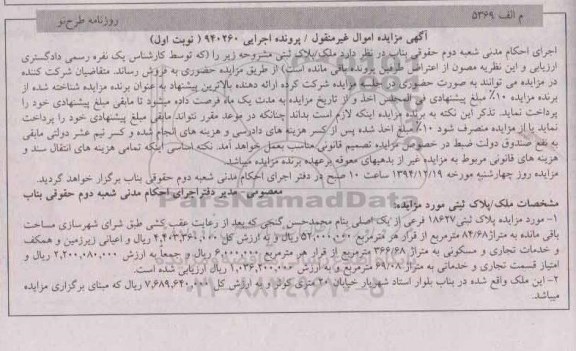 م الف ۵۳۶۹
روزنامه طرح‌نو
آگهی مزایده اموال غیرمنقول / پرونده اجرایی ۹۴۰۲۶۰ ( نوبت اول)
اجرای احکام مدنی شعبه دوم حقوقی بناب در نظر دارد ملک/پلاک ثبتی مشروحه زیر را (که توسط کارشناس یک نفره رسمی دادگستری
ارزیابی و این نظریه مصون از اعتراض طرفین پرونده باقی مانده است) از طریق مزایده حضوری به فروش رساند. متقاضیان شرکت کننده
در مزایده می توانند به صورت حضوری در جلسه مزایده شرکت کرده ارائه دهنده بالاترین پیشنهاد به عنوان برنده مزایده شناخته شده از
برنده مزایده ۱۰٪ مبلغ پیشنهادی فی المجلس اخذ و از تاریخ مزایده به مدت یک ماه فرصت داده میشود تا مابقی مبلغ پیشنهادی خود را
پرداخت نماید. تذکر این نکته به برنده مزایده اینکه لازم است بداند چنانکه در موعد مقرر نتواند مابقی مبلغ پیشنهادی خود را پرداخت
نماید یا از مزایده منصرف شود ۱۰٪ مبلغ اخذ شده پس از کسر هزینه های دادرسی و هزینه های انجام شده و کسر نیم عشر دولتی مابقی
به نفع صندوق دولت ضبط در خصوص مزایده تصمیم قانونی مناسب بعمل خواهد آمد. نکته اساسی اینکه تمامی هزینه های انتقال سند و
هزینه های قانونی مربوط به مزایده غیر از بدهیهای معوقه برعهده برنده مزایده میباشد.
مزایده روز چهارشنبه مورخه ۱۳۹۴/۱۲/۱۹ ساعت ۱۰ صبح در دفتر اجرای احکام مدنی شعبه دوم حقوقی بناب برگزار خواهد گردید.
معصومی- مدیر دفتر اجرای احکام مدنی شعبه دوم حقوقی بناب
مشخصات ملک/پلاک ثبتی مورد مزایده:
۱- مورد مزایده پلاک ثبتی ۱۸۶۲۷ فرعی از یک اصلی بنام محمدحسن گنجی که بعد از رعایت عقب کشی طبق شرای شهرسازی مساحت
باقی مانده به متراژ ۸۴/۶۸ مترمربع از قرار هر مترمربع ۵۲,۰۰۰,۰۰۰ ریال و به ارزش کل ۴,۴۰۳,۳۶۰,۰۰۰ ریال و اعیانی زیرزمین و همکف
و خدمات تجاری و مسکونی به متراژ ۳۶۶/۶۸ مترمربع از قرار هر مترمربع ۶,۰۰۰,۰۰۰ ریال و جمعاً به ارزش ۲,۲۰۰,۰۸۰,۰۰۰ ریال و
امتیاز قسمت تجاری و خدماتی به متراژ ۶۹/۰۸ مترمربع و به ارزش ۱,۰۳۶,۲۰۰,۰۰۰ ریال ارزیابی شده است.
۲- این ملک واقع شده در بناب بلوار استاد شهریار خیابان ۲۰ متری کوثر و به ارزش کل ۷,۶۸۹,۶۴۰,۰۰۰ ریال که مبنای برگزاری مزایده
میباشد.
ParsNamadData